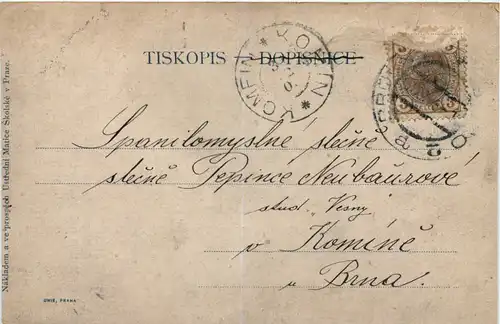 TISKOPIS – DOPISNICE
KOMEIN * KOMÍN *
Spanilomyslné slečně
slečně Pepince Neubaŭrové
stud. Vesny
v Komíně
u Brna.
Nákladem a ve prospěch Ústřední Matice Školské v Praze.
UNIE, PRAHA